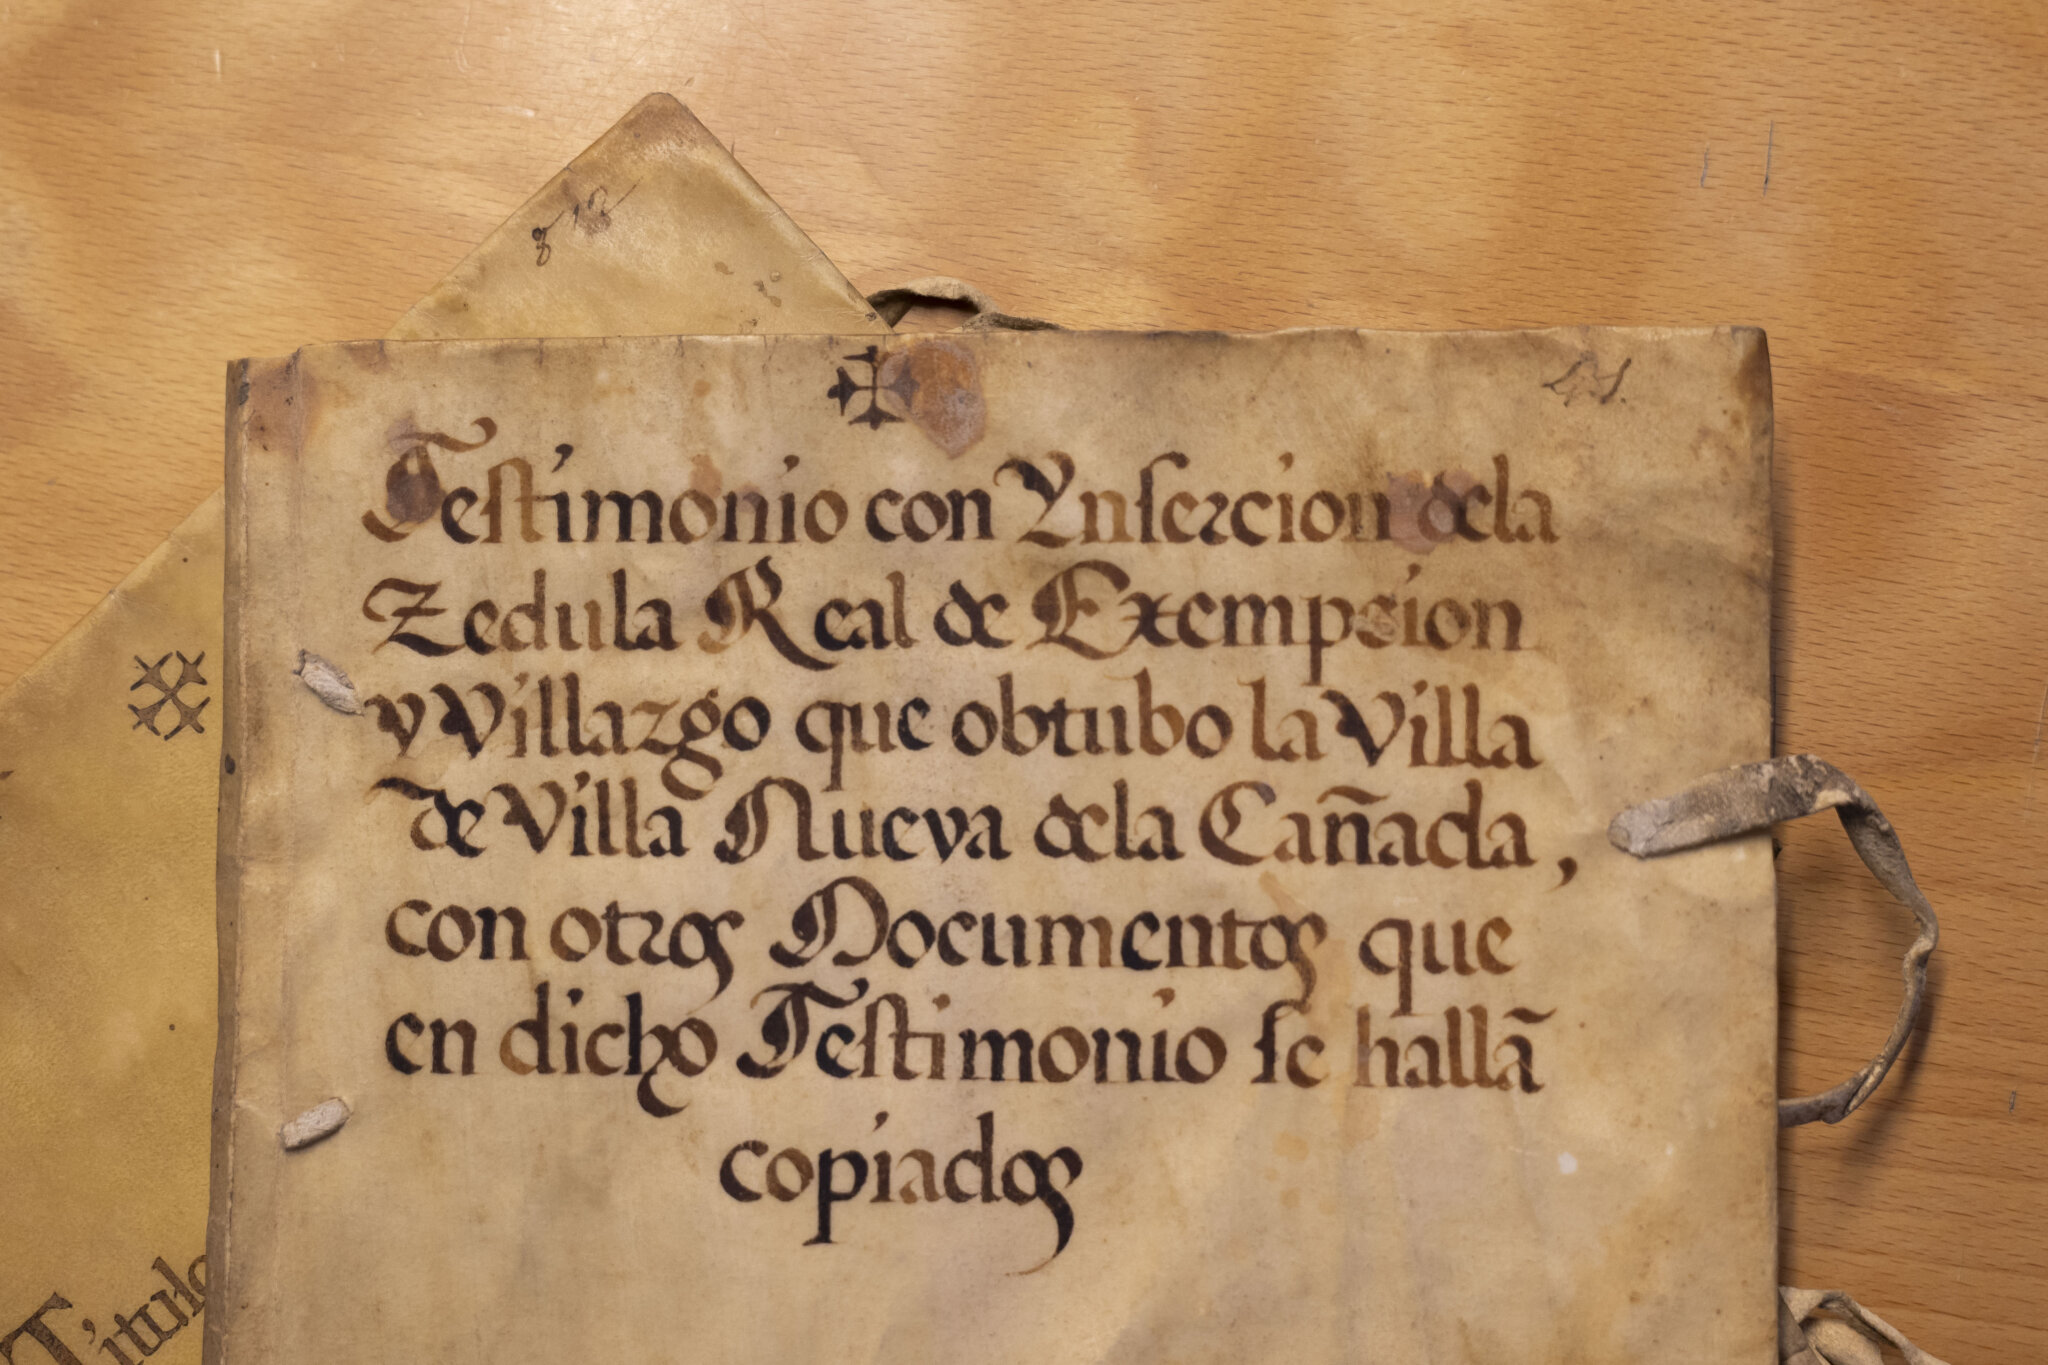 Testimonio con Ynsercion dela
Zedula Real de Exempsion
y Villazgo que obtubo la Villa
de Villa Nueva dela Cañada,
con otros Documentos que
en dicho Testimonio se hallã
copiados
Titulo